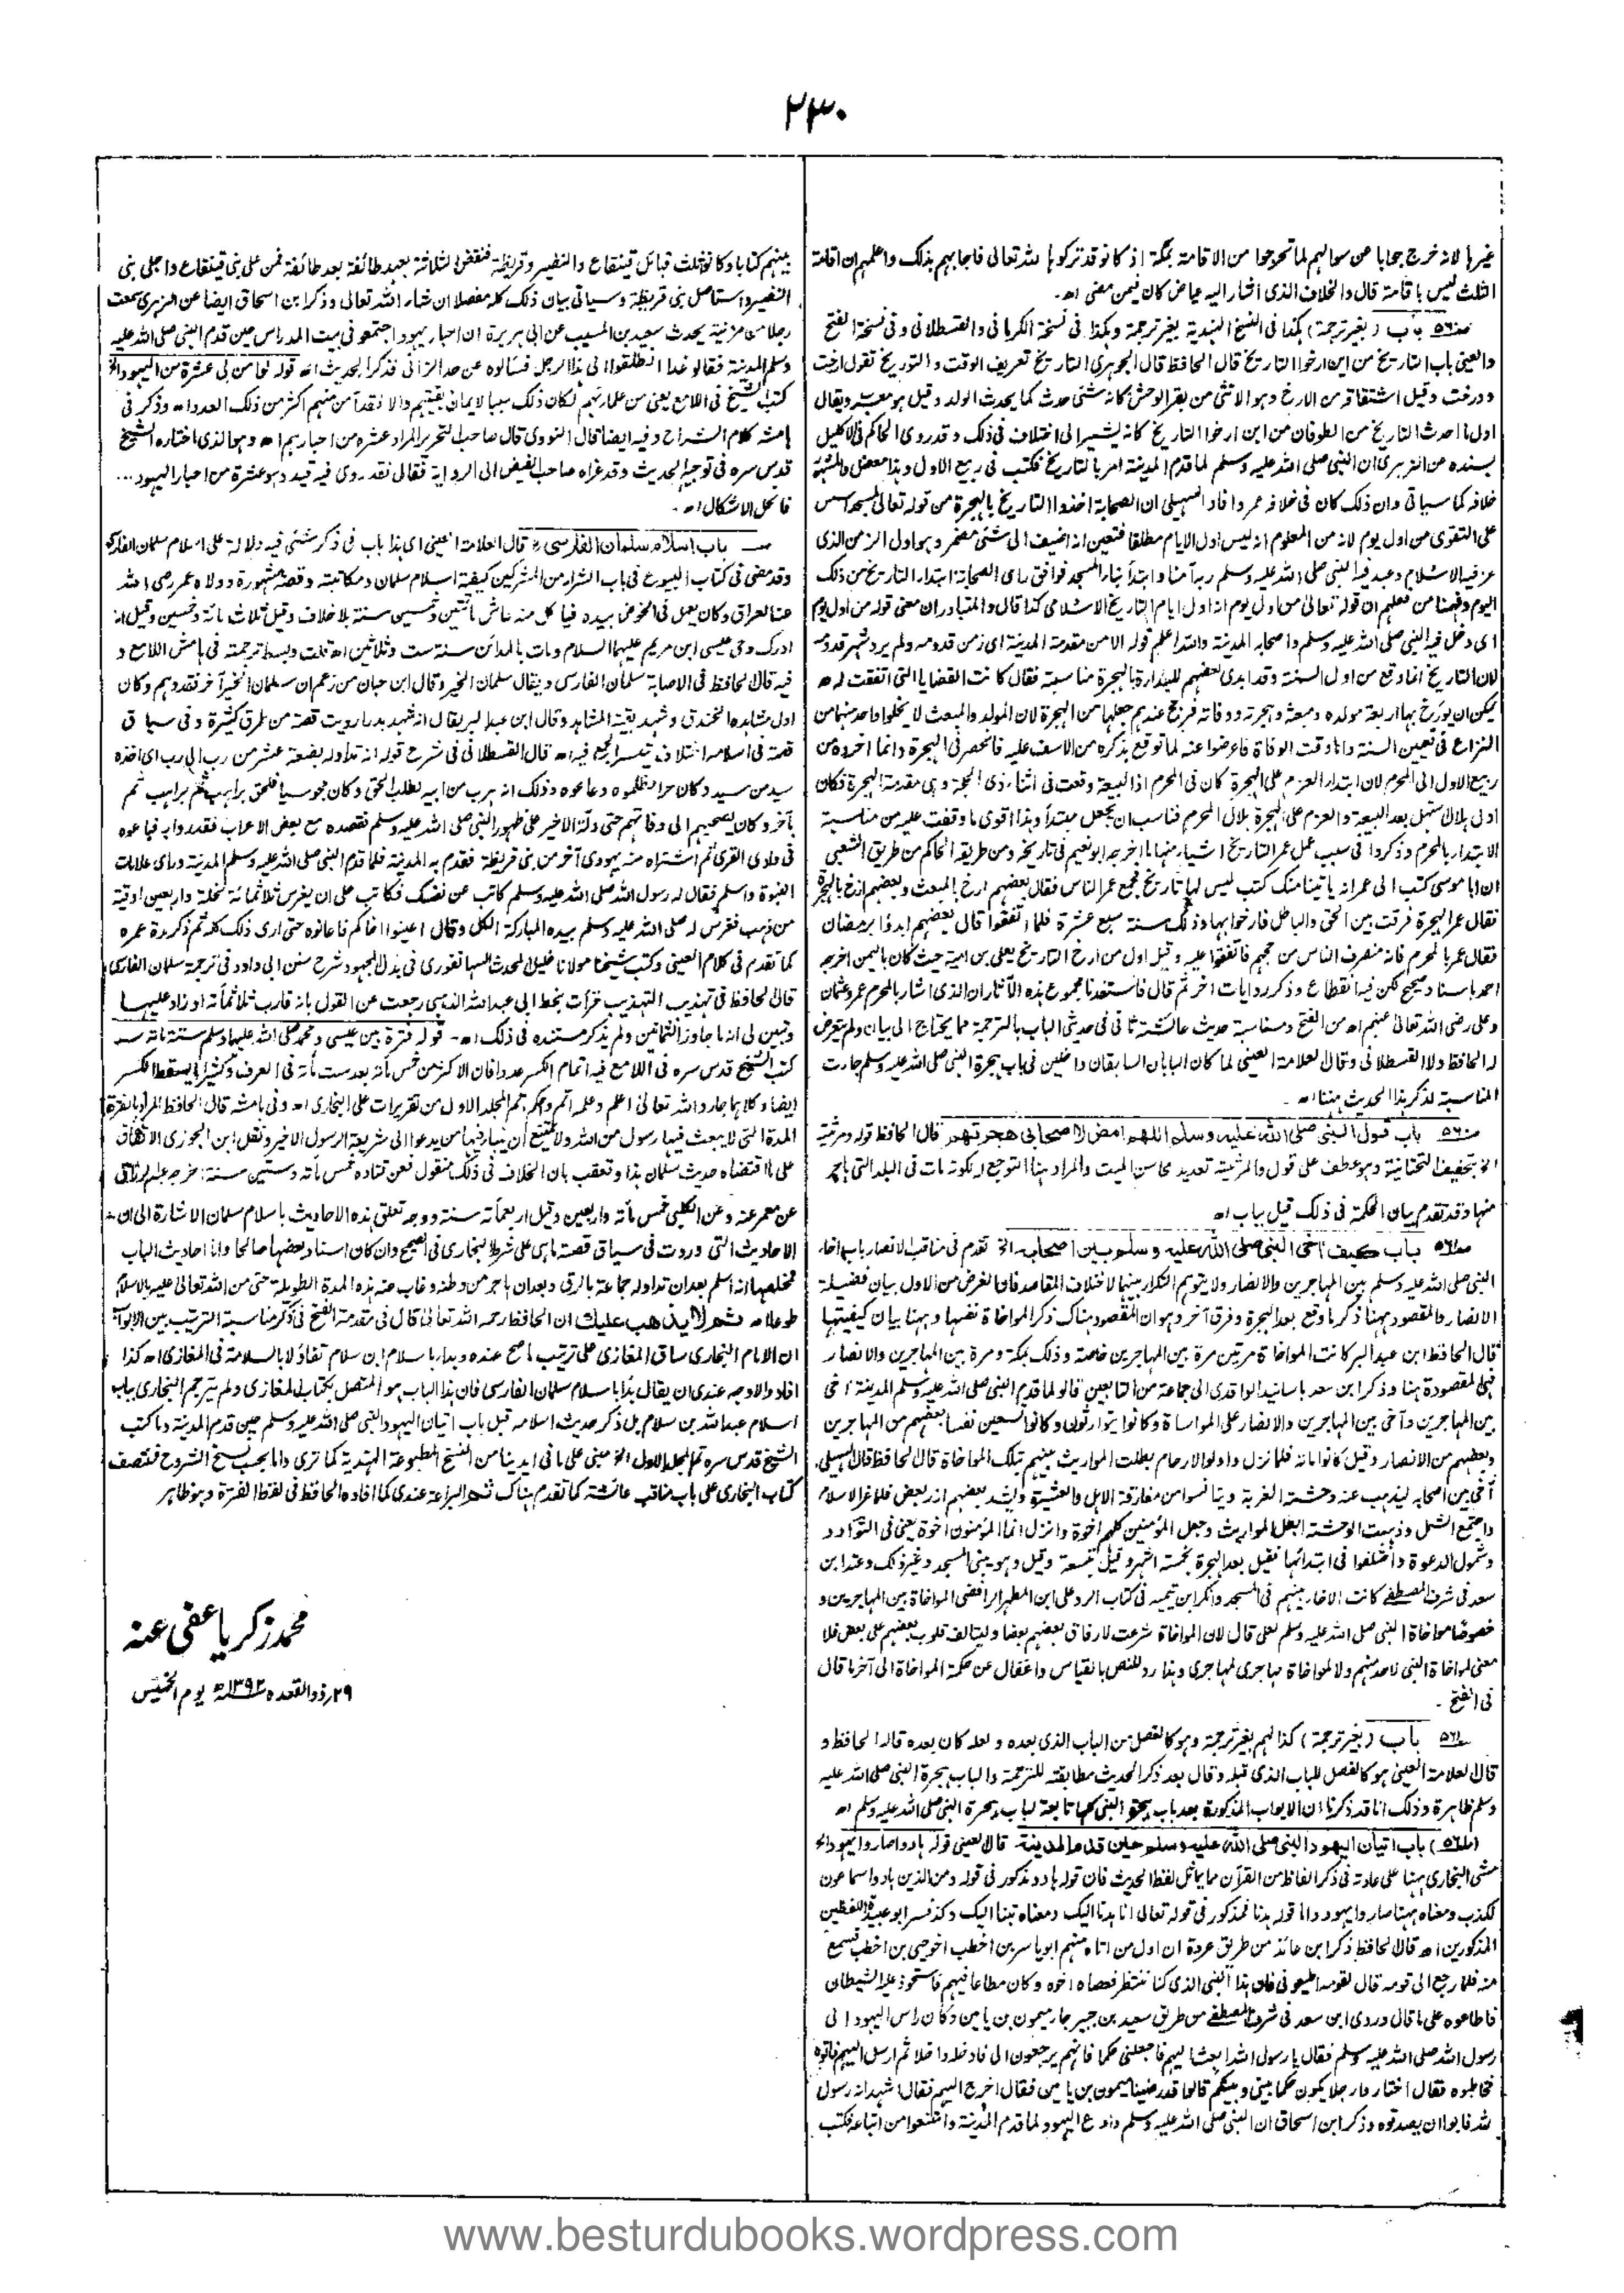 ٢٣٠
غيرها لانه خرج جوابا عن سوالهم لما تحرجوا من الاقامة بمكة اذ كانوا قد تركوها لله تعالى فاجابهم بذلك واعلمهم ان اقامة
الثلث ليس باقامة قال والخلاف الذى اشار اليه عياض كان فيمن مضى اھ۔
باب (بغير ترجمة) هكذا فى النسخ الهندية بغير ترجمة وهكذا فى نسخة الكرمانى والقسطلانى وفى نسخة الفتح
والعينى باب التاريخ من اين ارخوا التاريخ قال الحافظ قال الجوهرى التاريخ تعريف الوقت والتوريخ تقول ارخت
وورخت وقيل اشتقاقه من الارخ وهو الانثى من بقر الوحش كانه شئى حدث كما يحدث الولد وقيل هو معرب ويقال
اول ما احدث التاريخ من الطوفان من اين ارخوا التاريخ كانه يشير الى اختلاف فى ذلك وقد روى الحاكم فى الاكليل
بسنده عن الزهرى ان النبى صلى الله عليه وسلم لما قدم المدينة امر بالتاريخ فكتب فى ربيع الاول وهذا معضل والمشهور
خلافه كما سياتى وان ذلك كان فى خلافة عمر وافاد السهيلى ان الصحابة اخذوا التاريخ بالهجرة من قوله تعالى لمسجد اسس
على التقوى من اول يوم لانه من المعلوم انه ليس اول الايام مطلقا فتعين انه اضيف الى شئى مضمر وهو اول الزمن الذى
عز فيه الاسلام وعبد فيه النبى صلى الله عليه وسلم ربه آمنا وابتدأ بناء المسجد فوافق راى الصحابة ابتداء التاريخ من ذلك
اليوم وفهمنا من فعلهم ان قوله تعالى من اول يوم انه اول ايام التاريخ الاسلامى كذا قال والمتبادر ان معنى قوله من اول يوم
اى دخل فيه النبى صلى الله عليه وسلم واصحابه المدينة والله اعلم قوله الا من مقدمه المدينة اى زمن قدومه ولم يرد شهر قدومه
لان التاريخ انما وقع من اول السنة وقد ابدى بعضهم للبداءة بالهجرة مناسبة فقال كانت القضايا التى اتفقت له
يمكن ان يورخ بها اربعة مولده ومبعثه وهجرته ووفاته فرجح عندهم جعلها من الهجرة لان المولد والمبعث لا يخلو واحد منهما من
النزاع فى تعيين السنة واما وقت الوفاة فاعرضوا عنه لما توقع بذكره من الاسف عليه فانحصر فى الهجرة وانما اخروه من
ربيع الاول الى المحرم لان ابتداء العزم على الهجرة كان فى المحرم اذ البيعة وقعت فى اثناء ذى الحجة وهى مقدمة الهجرة فكان
اول هلال استهل بعد البيعة والعزم على الهجرة هلال المحرم فناسب ان يجعل مبتدأ وهذا اقوى ما وقفت عليه من مناسبة
الابتداء بالمحرم وذكروا فى سبب عمل عمر التاريخ اشياء منها ما اخرجه ابو نعيم فى تاريخه ومن طريقه الحاكم من طريق الشعبى
ان ابا موسى كتب الى عمر انه ياتينا منك كتب ليس لها تاريخ فجمع عمر الناس فقال بعضهم ارخ بالمبعث وبعضهم ارخ بالهجرة
فقال عمر الهجرة فرقت بين الحق والباطل فارخوا بها وذلك سنة سبع عشرة فلما اتفقوا قال بعضهم ابدؤا برمضان
فقال عمر بالمحرم فانه منصرف الناس من حجهم فاتفقوا عليه وقيل اول من ارخ التاريخ يعلى بن امية حيث كان باليمن اخرجه
احمد باسناد صحيح لكن فيه انقطاع وذكر روايات اخر ثم قال فاستفدنا مجموع هذه الآثار ان الذى اشار بالمحرم عمر وعثمان
وعلى رضى الله تعالى عنهم اھ من الفتح ومناسبة حديث عائشة ثانى فى حديثى الباب بالترجمة مما يحتاج الى بيان ولم يتعرض
له الحافظ ولا القسطلانى وقال العلامة العينى لما كان البابان السابقان داخلين فى باب هجرة النبى صلى الله عليه وسلم جاءت
المناسبة لذكر هذا الحديث ههنا اھ۔
باب قول النبى صلى الله عليه وسلم اللهم امض لاصحابى هجرتهم قال الحافظ قوله ومرثيته
الخ بتخفيف التحتانية وهو عطف على قول والمرثية تعديد محاسن الميت والمراد ههنا التوجع له لكونه مات فى البلد التى هاجر
منها وقد تقدم بيان الحكمة فى ذلك قبل بباب اھ
باب كيف آخى النبى صلى الله عليه وسلم بين اصحابه الخ تقدم فى مناقب الانصار باب اخاء
النبى صلى الله عليه وسلم بين المهاجرين والانصار ولا يتوهم التكرار بينهما لاختلاف المقاصد فان الغرض من الاول بيان فضيلة
الانصار والمقصود ههنا ذكر ما وقع بعد الهجرة وفرق آخر وهو ان المقصود هناك ذكر المواخاة نفسها وههنا بيان كيفيتها
قال الحافظ ابن عبد البر كانت المواخاة مرتين مرة بين المهاجرين خاصة وذلك بمكة ومرة بين المهاجرين والانصار
فهى المقصودة هنا وذكر ابن سعد باسانيد الواقدى الى جماعة من التابعين قالوا لما قدم النبى صلى الله عليه وسلم المدينة آخى
بين المهاجرين وآخى بين المهاجرين والانصار على المواساة وكانوا يتوارثون وكانوا تسعين نفسا بعضهم من المهاجرين
وبعضهم من الانصار وقيل كانوا مائة فلما نزل واولوا الارحام بطلت المواريث بينهم بتلك المواخاة قال الحافظ قال السهيلى
آخى بين اصحابه ليذهب عنه وحشة الغربة ويتانسوا من مفارقة الاهل والعشيرة ويشد بعضهم ازر بعض فلما عز الاسلام
واجتمع الشمل وذهبت الوحشة ابطل المواريث وجعل المؤمنين كلهم اخوة وانزل انما المؤمنون اخوة يعنى فى التوادد
وشمول الدعوة واختلفوا فى ابتدائها فقيل بعد الهجرة بخمسة اشهر وقيل بتسعة وقيل وهو يبنى المسجد وغير ذلك وعند ابن
سعد فى شرف المصطفى كانت الاخاء بينهم فى المسجد وانكر ابن تيمية فى كتاب الرد على ابن المطهر الرافضى المواخاة بين المهاجرين و
خصوصًا مواخاة النبى صلى الله عليه وسلم لعلى قال لان المواخاة شرعت لارفاق بعضهم بعضا وليتالف قلوب بعضهم على بعض فلا
معنى لمواخاة النبى لاحد منهم ولا لمواخاة مهاجرى لمهاجرى وهذا رد للنص بالقياس واغفال عن حكمة المواخاة الى آخر ما قال
فى الفتح۔
باب (بغير ترجمة) كذا لهم بغير ترجمة وهو كالفصل من الباب الذى بعده ولعله كان بعده قاله الحافظ و
قال العلامة العينى هو كالفصل للباب الذى قبله وقال بعد ذكر الحديث مطابقته للترجمة والباب هجرة النبى صلى الله عليه
وسلم ظاهرة وذلك انا قد ذكرنا ان الابواب المذكورة بعد باب هجرة النبى كلها تابعة لباب هجرة النبى صلى الله عليه وسلم اھ
باب اتيان اليهود النبى صلى الله عليه وسلم حين قدم المدينة قال العينى قوله هادوا صاروا يهودا الخ
مشى البخارى ههنا على عادته فى ذكر الفاظ من القرآن مما يماثل لفظ الحديث فان قوله هادوا مذكور فى قوله ومن الذين هادوا سماعون
للكذب ومعناه ههنا صاروا يهودا واما قوله هدنا فمذكور فى قوله تعالى انا هدنا اليك ومعناه تبنا اليك وكذا فسر ابو عبيدة اللفظين
المذكورين اھ قال الحافظ ذكر ابن عائذ من طريق عروة ان اول من اتاه منهم ابو ياسر بن اخطب اخو حيى بن اخطب فسمع
منه فلما رجع الى قومه قال لقومه اطيعونى فان هذا النبى الذى كنا ننتظر فعصاه اخوه وكان مطاعا فيهم فاستحوذ عليه الشيطان
فاطاعوه على ما قال وروى ابن سعد فى شرف المصطفى من طريق سعيد بن جبير جاء ميمون بن يامين وكان راس اليهود الى
رسول الله صلى الله عليه وسلم فقال يا رسول الله ابعث اليهم فاجعلنى حكما فانهم يرجعون الى فادخله داخلا ثم ارسل اليهم فاتوه
فخاطبوه فقال اختاروا رجلا يكون حكما بينى وبينكم قالوا قد رضينا ميمون بن يامين فقال اخرج اليهم فقال اشهد انه رسول
الله فابوا ان يصدقوه وذكر ابن اسحاق ان النبى صلى الله عليه وسلم وادع اليهود لما قدم المدينة وامتنعوا من اتباعه فكتب
بينهم كتابا وكانوا ثلث قبائل قينقاع والنضير وقريظة فنقض الثلاثة العهد طائفة بعد طائفة فمن على بنى قينقاع واجلى بنى
النضير واستاصل بنى قريظة وسياتى بيان ذلك كله مفصلا ان شاء الله تعالى وذكر ابن اسحاق ايضا عن الزهرى سمعت
رجلا من مزينة يحدث سعيد بن المسيب عن ابى هريرة ان احبار يهود اجتمعوا فى بيت المدراس حين قدم النبى صلى الله عليه
وسلم المدينة فقالوا غدا انطلقوا الى هذا الرجل فسالوه عن حد الزانى فذكر الحديث اھ قوله لو آمن بى عشرة من اليهود الخ
كتب الشيخ فى اللامع يعنى من علمائهم لكان ذلك سببا لايمان بقيتهم والا فقد آمن منهم اكثر من ذلك العدد اھ وذكر فى
هامشه كلام الشراح وفيه ايضا قال النووى قال صاحب التحرير المراد عشرة من احبارهم اھ وهو الذى اختاره الشيخ
قدس سره فى توجيه الحديث وقد عزاه صاحب الفيض الى الرواية فقال فقد روى فيه قيد وهو عشرة من احبار اليهود...
فانحل الاشكال اھ۔
باب اسلام سلمان الفارسى قال العلامة العينى اى هذا باب فى ذكر شئى فيه دلالة على اسلام سلمان الفارسى
وقد مضى فى كتاب البيوع فى باب الشراء من المشركين كيفية اسلام سلمان ومكاتبته وقصته مشهورة وولاه عمر رضى الله
عنه العراق وكان يعمل فى الخوص بيده فياكل منه عاش مأتين وخمسين سنة بلا خلاف وقيل ثلاث مائة وخمسين وقيل انه
ادرك وحى عيسى ابن مريم عليهما السلام ومات بالمدائن سنة ست وثلاثين اھ قلت وبسط ترجمته فى هامش اللامع و
فيه قال الحافظ فى الاصابة سلمان الفارسى ويقال سلمان الخير وقال ابن حبان من زعم ان سلمان الخير آخر فقد وهم وكان
اول مشاهده الخندق وشهد بقية المشاهد وقال ابن عبد البر يقال انه شهد بدرا رويت قصته من طرق كثيرة وفى سياق
قصته فى اسلامه اختلاف يتعسر الجمع فيه اھ قال القسطلانى فى شرح قوله انه تداوله بضعة عشر من رب الى رب اى اخذه
سيد من سيد وكان حرا فظلموه وباعوه وذلك انه هرب من ابيه لطلب الحق وكان مجوسيا فلحق براهب ثم براهب ثم
بآخر وكان يصحبهم الى وفاتهم حتى دله الاخير على ظهور النبى صلى الله عليه وسلم فقصده مع بعض الاعراب فغدروا به فباعوه
فى وادى القرى ثم اشتراه منه يهودى آخر من بنى قريظة فقدم به المدينة فلما قدم النبى صلى الله عليه وسلم المدينة وراى علامات
النبوة واسلم فقال له رسول الله صلى الله عليه وسلم كاتب عن نفسك فكاتب على ان يغرس ثلاثمائة نخلة واربعين اوقية
من ذهب فغرس له صلى الله عليه وسلم بيده المباركة الكل وقال اعينوا اخاكم فاعانوه حتى ادى ذلك كله ثم ذكر مدة عمره
كما تقدم فى كلام العينى وكتب شيخنا مولانا خليل المحدث السهارنفورى فى بذل المجهود شرح سنن ابى داود فى ترجمة سلمان الفارسى
قال الحافظ فى تهذيب التهذيب قرأت بخط ابى عبد الله الذهبى رجعت عن القول بانه قارب ثلاثمأئة او زاد عليها
وتبين لى انه ما جاوز الثمانين ولم يذكر مستنده فى ذلك اھ۔ قوله فترة بين عيسى ومحمد صلى الله عليهما وسلم ستمائة سنة
كتب الشيخ قدس سره فى اللامع فيه اتمام الكسر عددا فان الاكثر من خمس مأئة يعد ست مأئة فى العرف وكثيرا يسقط الكسر
ايضا وكلاهما جار والله تعالى اعلم وعلمه اتم وحكم تم المجلد الاول من تقريرات على البخارى اھ وفى هامشه قال الحافظ المراد بالفترة
المدة التى لا يبعث فيها رسول من الله ولا يمتنع ان ينبأ فيها من يدعو الى شريعة الرسول الاخير ونقل ابن الجوزى الاتفاق
على ما اقتضاه حديث سلمان هذا وتعقب بان الخلاف فى ذلك منقول فعن قتادة خمس مأئة وستين سنة اخرجه عبد الرزاق
عن معمر عنه وعن الكلبى خمس مأئة واربعين وقيل اربعمأئة سنة ووجه تعلق هذه الاحاديث باسلام سلمان الاشارة الى ان
الاحاديث التى وردت فى سياق قصته ما هى على شرط البخارى فى الصحيح وان كان اسناد بعضها صالحا واما احاديث الباب
فمخلصها انه اسلم بعد ان تداوله جماعة بالرق وبعد ان هاجر من وطنه وغاب عنه هذه المدة الطويلة حتى من الله تعالى عليه بالاسلام
طوعا اھ ثم لا يذهب عليك ان الحافظ رحمه الله تعالى قال فى مقدمة الفتح فى ذكر مناسبة الترتيب بين الابواب
ان الامام البخارى ساق المغازى على ترتيب ما صح عنده وبدأ باسلام ابن سلام تفاؤلا بالسلامة فى المغازى اھ كذا
افاد والاوجه عندى ان يقال بدأ باسلام سلمان الفارسى فان هذا الباب هو المتصل بكتاب المغازى ولم يترجم البخارى بباب
اسلام عبد الله بن سلام بل ذكر حديث اسلامه قبل باب اتيان اليهود النبى صلى الله عليه وسلم حين قدم المدينة وما كتب
الشيخ قدس سره تم المجلد الاول الخ مبنى على ما فى ايدينا من النسخ المطبوعة الهندية كما ترى واما بحسب نسخ الشروح فنتصف
كتاب البخارى على باب مناقب عائشة كما تقدم هناك ثم البراعة عندى كما افاده الحافظ فى لفظ الفترة وهو ظاهر
محمد زكريا عفى عنه
٢٩ ذوالقعده ١٣٩٢ھ يوم الخميس
www.besturdubooks.wordpress.com